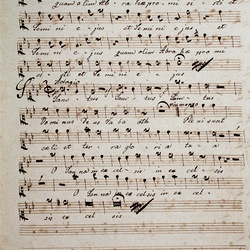 quam olim Abrahae promi sisti et
Semini e jus et semini e jus
Semini ejus quam olim Abra hae promi
sisti et Semini e jus
Sanc tus Sanc tus Sanc tus
Dominus De us Sa ba oth Pleni sunt
caeli et ter ra glo ri a tu a
O Sanna in ex celsis in ex cel
O Sanna in ex celsis in ex cel
sis ex cel sis